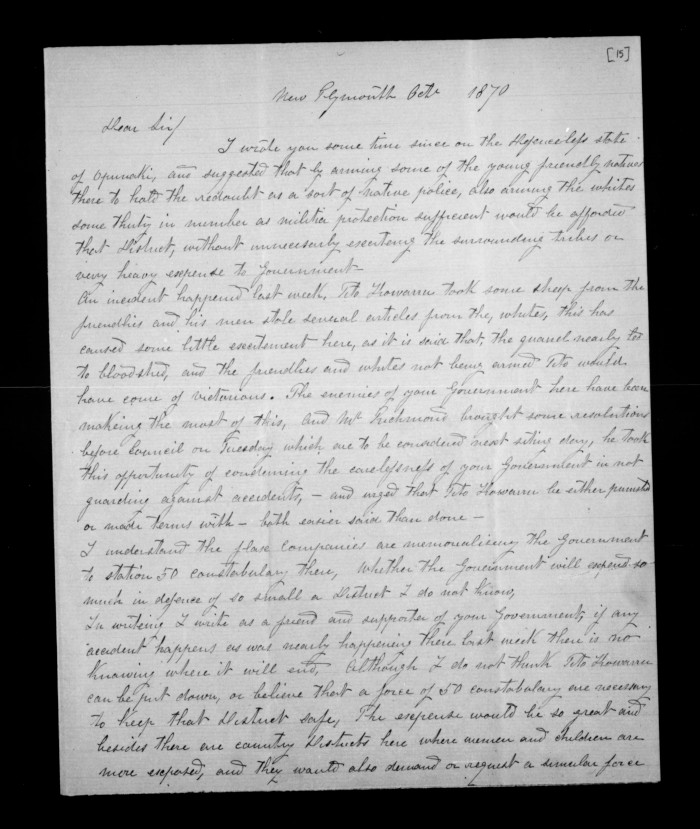 [15]
New Plymouth Octr 1870
Dear Sir/
I wrote you some time since on the defenceless state
of Opunaki, and suggested that by arming some of the young friendly natives
there to hold the redoubt as a sort of native police, also arming the whites
some thirty in number as militia protection sufficient would be afforded
that District, without unnecessarly exciteing the surrounding tribes or
very heavy expense to Government
An incident happened last week, Tito Howarru took some sheep from the
friendlies and his men stole several articles from the, whites, this has
caused some little excitement here, as it is said that, the quarrel nearly led
to bloodshed, and the friendlies and whites not being armed Tito would
have come of victorious. The enemies of your Government here have been
making the most of this, and Mr Richmond brought some resolutions
before Council on Tuesday which are to be considered next siting day, he took
this opportunity of condeming the carelessness of your Government in not
guarding against accidents, – and urged that Tito Howarru be either punished
or made terms with – both easier said than done –
I understand the flax Companies are memorialiceing the Government
to station 50 constabulary there, Whether the Government will expend so
much in defence of so small a District I do not know,
In writing I write as a friend and supporter of your Government, if any
accident happens as was nearly happening there last week there is no
knowing where it will end, Although I do not think Tito Howarru
can be put down, or believe that a force of 50 constabulary are necessary
to keep that District safe, The expense would be so great and
besides there are country districts here where women and children are
more exposed, and they would also demand or request a simular force